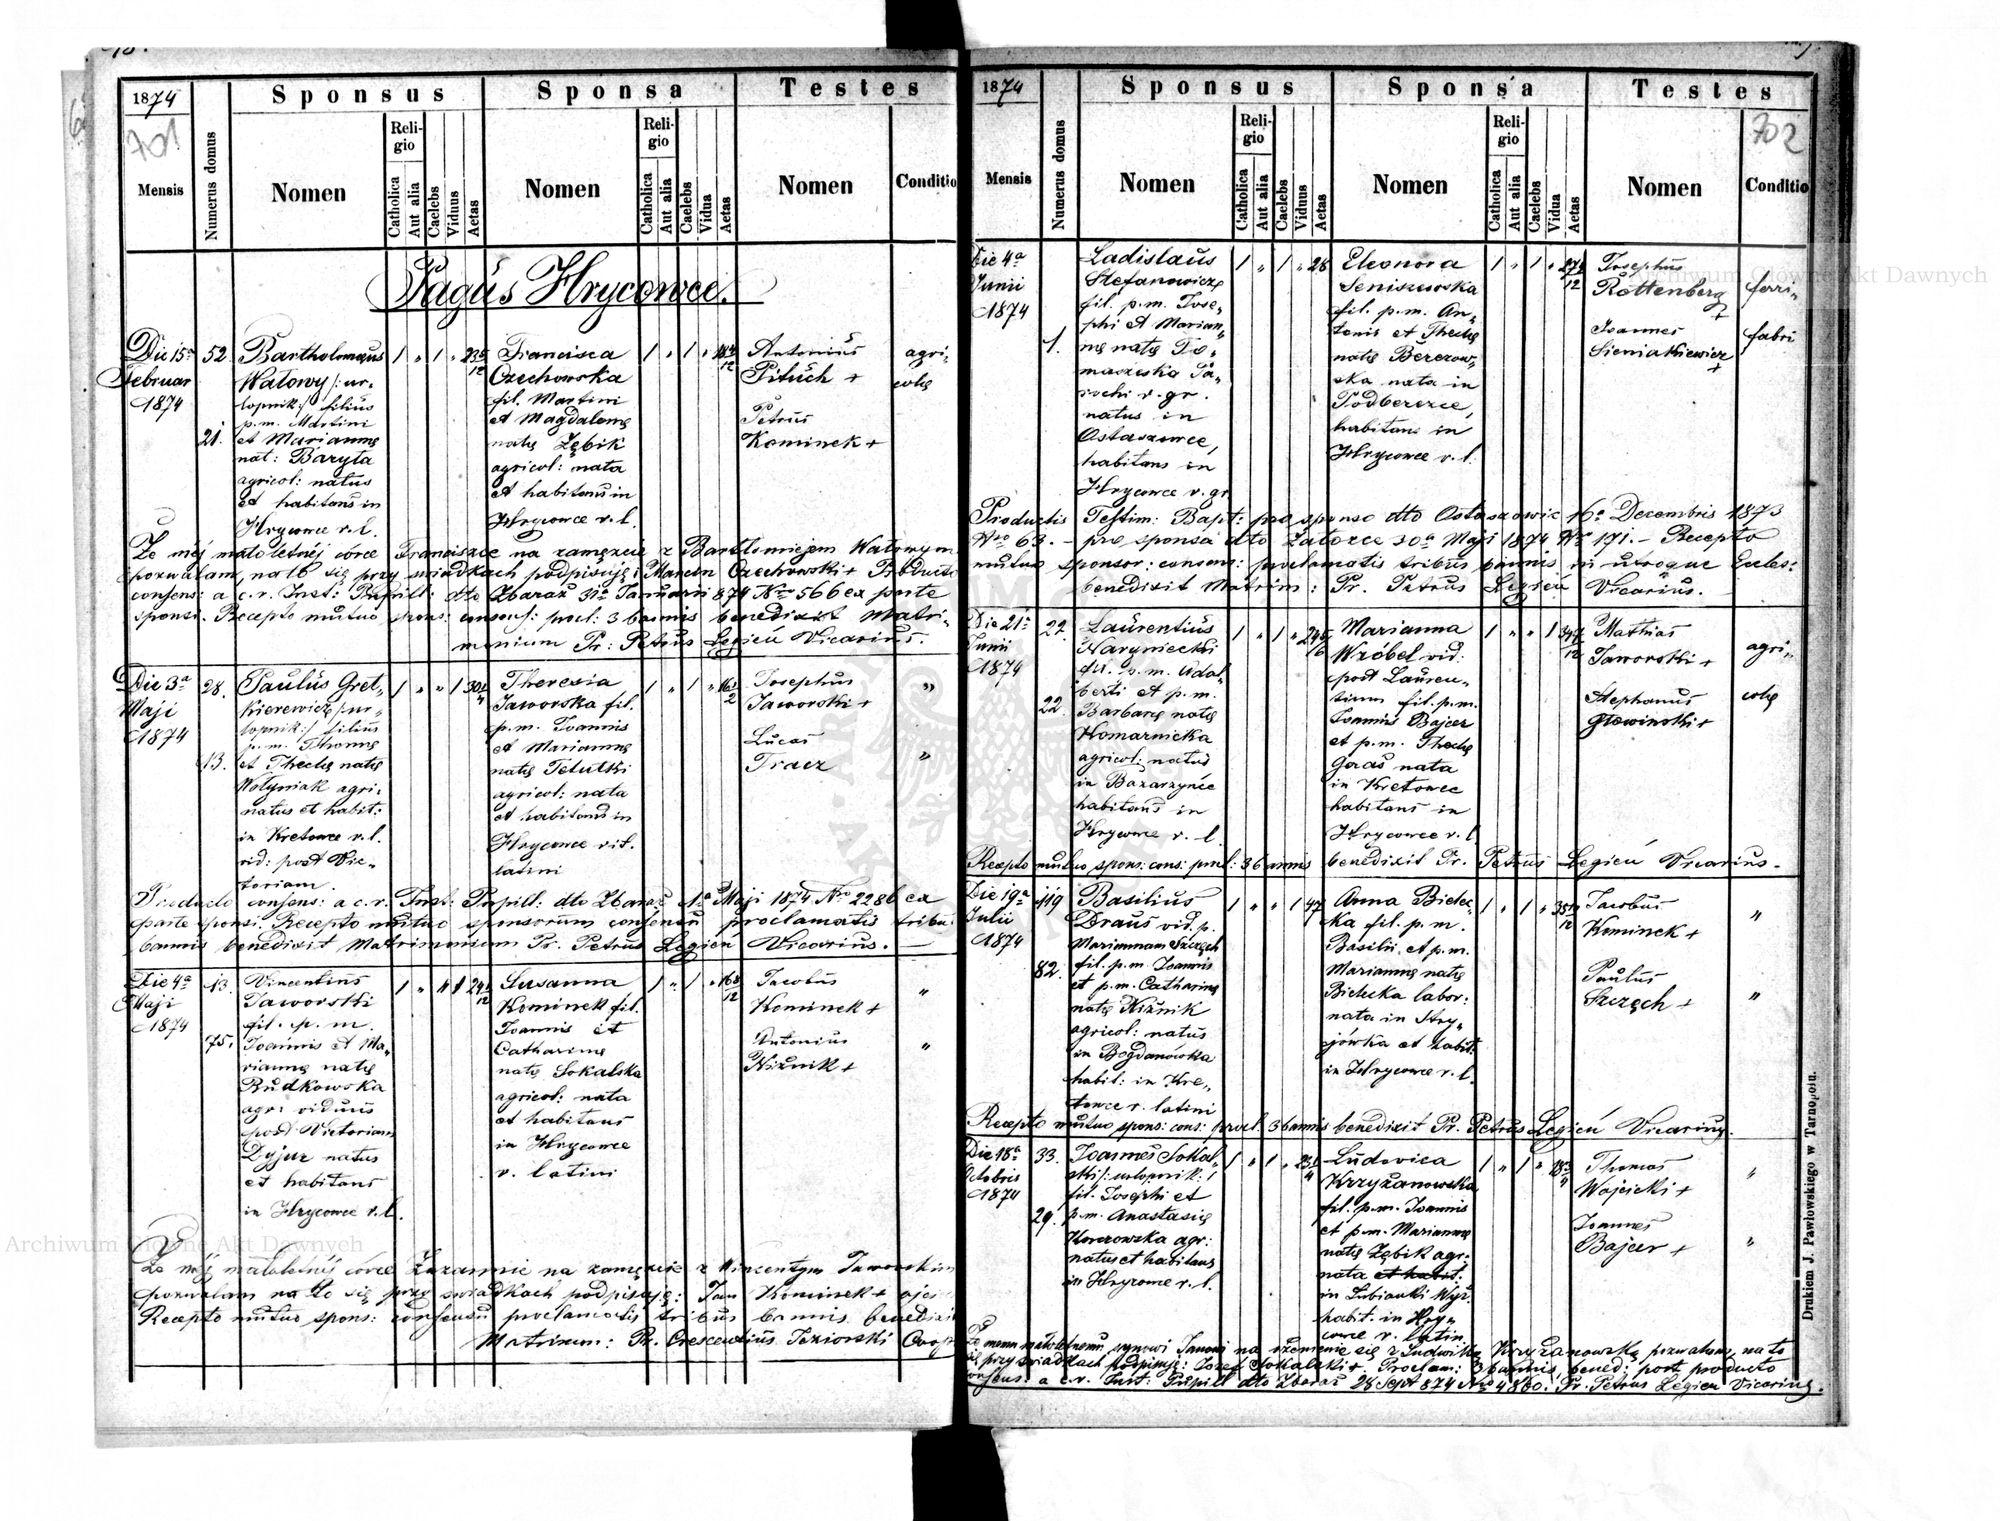 1874
701
Mensis
Numerus domus
Sponsus
Nomen
Religio
Catholica
Aut alia
Caelebs
Viduus
Aetas
Sponsa
Nomen
Religio
Catholica
Aut alia
Caelebs
Vidua
Aetas
Testes
Nomen
Conditio
Pagus Hrycowce.
Die 15a
Februar
1874
52.
21.
Bartholomæus
Watowy /: ur-
lopnik :/ filius
p.m. Martini
et Mariannę
nat: Baryta
agricol: natus
et habitans in
Hrycowce r. l.
1 " 1 " 23 5/12
Francisca
Czechowska
fil. Martini
et Magdalenę
natę Zębik
agricol: nata
et habitans in
Hrycowce r. l.
1 " 1 "
Antonius
Pituch +
Petrus
Kominek +
agri-
colę
Że mej małoletnéj córce Franciszce na zamęzcie z Bartłomiejem Watowym
pozwalam, na to się przy swiadkach podpisuję: Marcin Czechowski + Producto
consens: a c. r. Inst: Pupill: dto Zbaraż 31a Januarii 874 Nro 566 ex parte
sponsi. Recepto mutuo spons: consens: procl: 3 bannis benedixit Matri-
monium Pr: Petrus Legień Vicarius.
Die 3a
Maji
1874
28.
13.
Paulus Gret-
kierewicz /: ur-
lopnik :/ filius
p.m. Thomę
et Theclę natę
Wołyniak agri:
natus et habit:
in Kretowce r. l.
vid: post Vic-
toriam.
1 " " 1 30
Theresia
Jaworska fil.
p.m. Joannis
et Mariannę
natę
agricol: nata
et habitans in
Hrycowce rit.
latini
1 " 1 " 16 1/2
Josephus
Jaworski +
Lucas
Tracz
"
"
Producto consens: a c. r. Inst: Pupill: dto Zbaraż 1a Maji 1874 Nro 2286 ex
parte sponsi. Recepto mutuo sponsorum consensu proclamatis tribus
bannis benedixit Matrimonium Pr. Petrus Legień Vicarius.
Die 4a
Maji
1874
13.
75.
Vincentius
Jaworski
fil. p. m.
Joannis et Ma-
riannę natę
Rudkowska
agr: viduus
post Victoriam
Dyjur natus
et habitans
in Hrycowce r. l.
1 " " 1
Susanna
Kominek fil.
Joannis et
Catharinę
natę Sokalska
agricol: nata
et habitans
in Hrycowce
r. latini
1 " 1 " 16 8/12
Jacobus
Kominek +
Antonius
Niżnik +
"
"
Że mej małoletniéj córce Zuzannie na zamęzcie z Wincentym Jaworskim
pozwalam na to się przy swiadkach podpisuję: Jan Kominek + ojciec
Recepto mutuo spons: consensu proclamatis tribus bannis benedixit
Matrimon: Pr. Crescentius Jeziorski Coop
1874
702
Mensis
Numerus domus
Sponsus
Nomen
Religio
Catholica
Aut alia
Caelebs
Viduus
Aetas
Sponsa
Nomen
Religio
Catholica
Aut alia
Caelebs
Vidua
Aetas
Testes
Nomen
Conditio
Die 4a
Junii
1874
1.
Ladislaus
Stefanowicz
fil. p. m. Jose-
phi et Marian-
nę natę To-
maszeska Pa-
rochi r. gr.
natus in
Ostaszowce,
habitans in
Hrycowce r. gr.
1 " 1 " 28
Eleonora
Seniszewska
fil. p. m. An-
tonii et Theclę
natę Berezow-
ska nata in
Podberezce,
habitans in
Hrycowce r. l.
1 " 1 "
Josephus
Rottenberg
+
Joannes
Sieniakiewicz
+
ferri-
fabri
Productis Testim: Bapt: pro sponso dto Ostaszowic 16a Decembris 1873
Nro 63. - pro sponsa dto Załoźce 30a Maji 1874 Nro 171. - Recepto
mutuo sponsor: consens: proclamatis tribus bannis in utroque Eccles:
benedixit Matrim: Pr. Petrus Legień Vicarius.
Die 21a
Junii
1874
22.
22.
Laurentius
Haryniecki
fil. p. m. Adal-
berti et p. m.
Barbarę natę
Komarnicka
agricol: natus
in Bazarzyńce
habitans in
Hrycowce r. l.
1 " 1 "
Marianna
Wróbel vid:
post Lauren-
tium fil. p. m.
Joannis Bajcer
et p. m. Theclę
Goras nata
in Kretowce
habitans in
Hrycowce r. l.
1 " " 1 34 7/12
Mathias
Jaworski +
Stephanus
Głowinski +
agri-
colę
Recepto mutuo spons: cons: procl: 3 bannis benedixit Pr. Petrus Legień Vicarius.
Die 19a
Julii
1874
119
82.
Basilius
Draus vid. p.
Mariannam Szczęch
fil. p. m. Joannis
et p. m. Catharinę
natę Niżnik
agricol: natus
in Bogdanówka
habit: in Kre-
towce r. latini
1 " " 1 47
Anna Bielec-
ka fil. p. m.
Basilii et p. m.
Mariannę natę
Bielecka labor:
nata in Stry-
jówka et habit:
in Hrycowce r. l.
1 " 1 "
Jacobus
Kominek +
Paulus
Szczęch +
"
"
Recepto mutuo spons: cons: procl: 3 bannis benedixit Pr. Petrus Legień Vicarius.
Die 18a
Octobris
1874
33.
29.
Joannes Sokal-
ski /: urlopnik :/
fil. Josephi et
p. m. Anastasię
Korczowska agr:
natus et habitans
in Hrycowce r. l.
1 " 1 " 23
Ludovica
Krzyżanowska
fil. p. m. Joannis
et p. m. Mariannę
natę Zębik agr:
nata et habit:
in Lubianki Wyż.
habit: in Hry-
cowce r. latin.
1 " 1 "
Thomas
Wojcicki +
Joannes
Bajcer +
"
"
Że memu małoletnemu synowi Janowi na ożenienie się z Ludwiką Krzyżanowską pozwalam, na to
się przy swiadkach podpisuję: Józef Sokalski +. Proclam: 3 bannis bened: post producto
consens: a c. r. Inst: Pupill dto Zbaraż 28 Sept 874 Nro 4860. Pr. Petrus Legień Vicarius.
Drukiem J. Pawłowskiego w Tarnopolu.
Archiwum Główne Akt Dawnych
Archiwum Główne Akt Dawnych